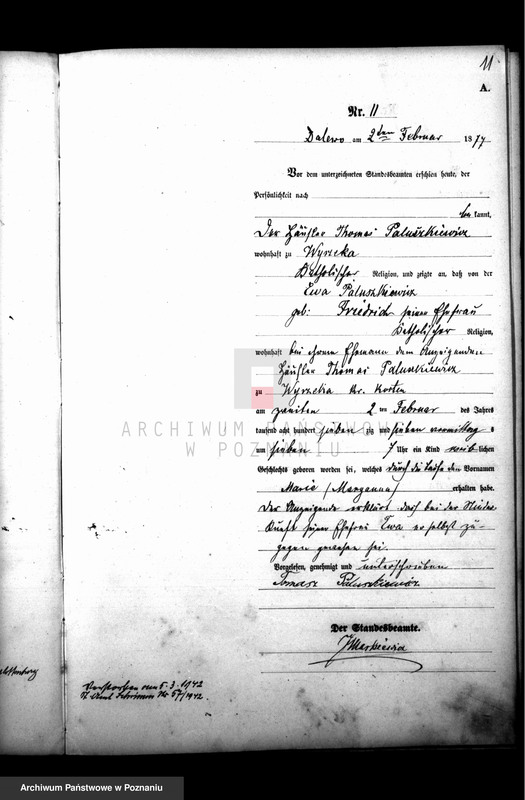 11
A.
Nr. 11
Dalewo am 2ten Februar 1877
Vor dem unterzeichneten Standesbeamten erschien heute, der
Persönlichkeit nach
be kannt,
Der Häusler Thomas Paluszkiewicz
wohnhaft zu Wyrzeka
katholischer Religion, und zeigte an, daß von der
Ewa Paluszkiewicz
geb: Friedrich seiner Ehefrau
katholischer Religion,
wohnhaft bei ihrem Ehemann dem Anzeigenden
Häusler Thomas Paluszkiewicz
zu Wyrzeka Kr. Kosten
am zweiten 2 ten Februar des Jahres
tausend acht hundert sieben zig und sieben vormittag s
um sieben 7 Uhr ein Kind weib lichen
Geschlechts geboren worden sei, welches durch die Taufe den Vornamen
Marie (Maryanna) erhalten habe.
Der Anzeigende erklärt daß bei der Nieder-
kunft seiner Ehefrau Ewa er selbst zu-
gegen gewesen sei.
Vorgelesen, genehmigt und unterschrieben
Tomasz Paluszkiewicz
Der Standesbeamte.
Verstorben am 5.3.1942
Nr. 57/1942.
ARCHIWUM PAŃSTWOWE
W POZNANIU
Archiwum Państwowe w Poznaniu